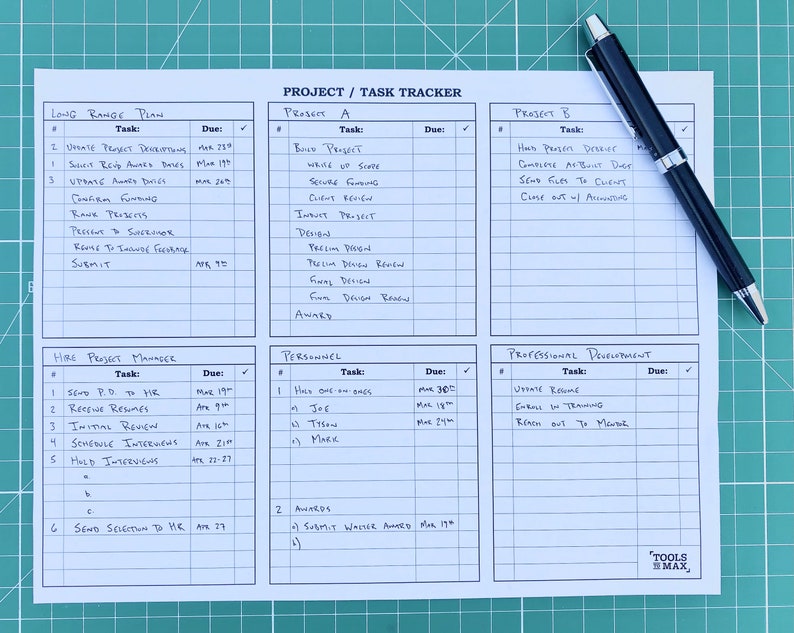 PROJECT / TASK TRACKER
LONG RANGE PLAN
# Task: Due: ✓
2 UPDATE PROJECT DESCRIPTIONS MAR 23RD
1 SOLICIT REV'D AWARD DATES MAR 19TH
3 UPDATE AWARD DATES MAR 26TH
CONFIRM FUNDING
RANK PROJECTS
PRESENT TO SUPERVISOR
REVISE TO INCLUDE FEEDBACK
SUBMIT APR 9TH
PROJECT A
# Task: Due: ✓
BUILD PROJECT
WRITE UP SCOPE
SECURE FUNDING
CLIENT REVIEW
INDUCT PROJECT
DESIGN
PRELIM DESIGN
PRELIM DESIGN REVIEW
FINAL DESIGN
FINAL DESIGN REVIEW
AWARD
PROJECT B
# Task: ✓
HOLD PROJECT DEBRIEF
COMPLETE AS-BUILT DWGS
SEND FILES TO CLIENT
CLOSE OUT W/ ACCOUNTING
HIRE PROJECT MANAGER
# Task: Due: ✓
1 SEND P.D. TO HR MAR 19TH
2 RECEIVE RESUMES APR 9TH
3 INITIAL REVIEW APR 16TH
4 SCHEDULE INTERVIEWS APR 21ST
5 HOLD INTERVIEWS APR 22-27
a.
b.
c.
6 SEND SELECTION TO HR APR 27
PERSONNEL
# Task: Due: ✓
1 HOLD ONE-ON-ONES MAR 30TH
a) JOE MAR 18TH
b) TYSON MAR 24TH
c) MARK
2 AWARDS
a) SUBMIT WALTER AWARD MAR 19TH
b)
PROFESSIONAL DEVELOPMENT
# Task: Due: ✓
UPDATE RESUME
ENROLL IN TRAINING
REACH OUT TO MENTOR
TOOLS
TO MAX